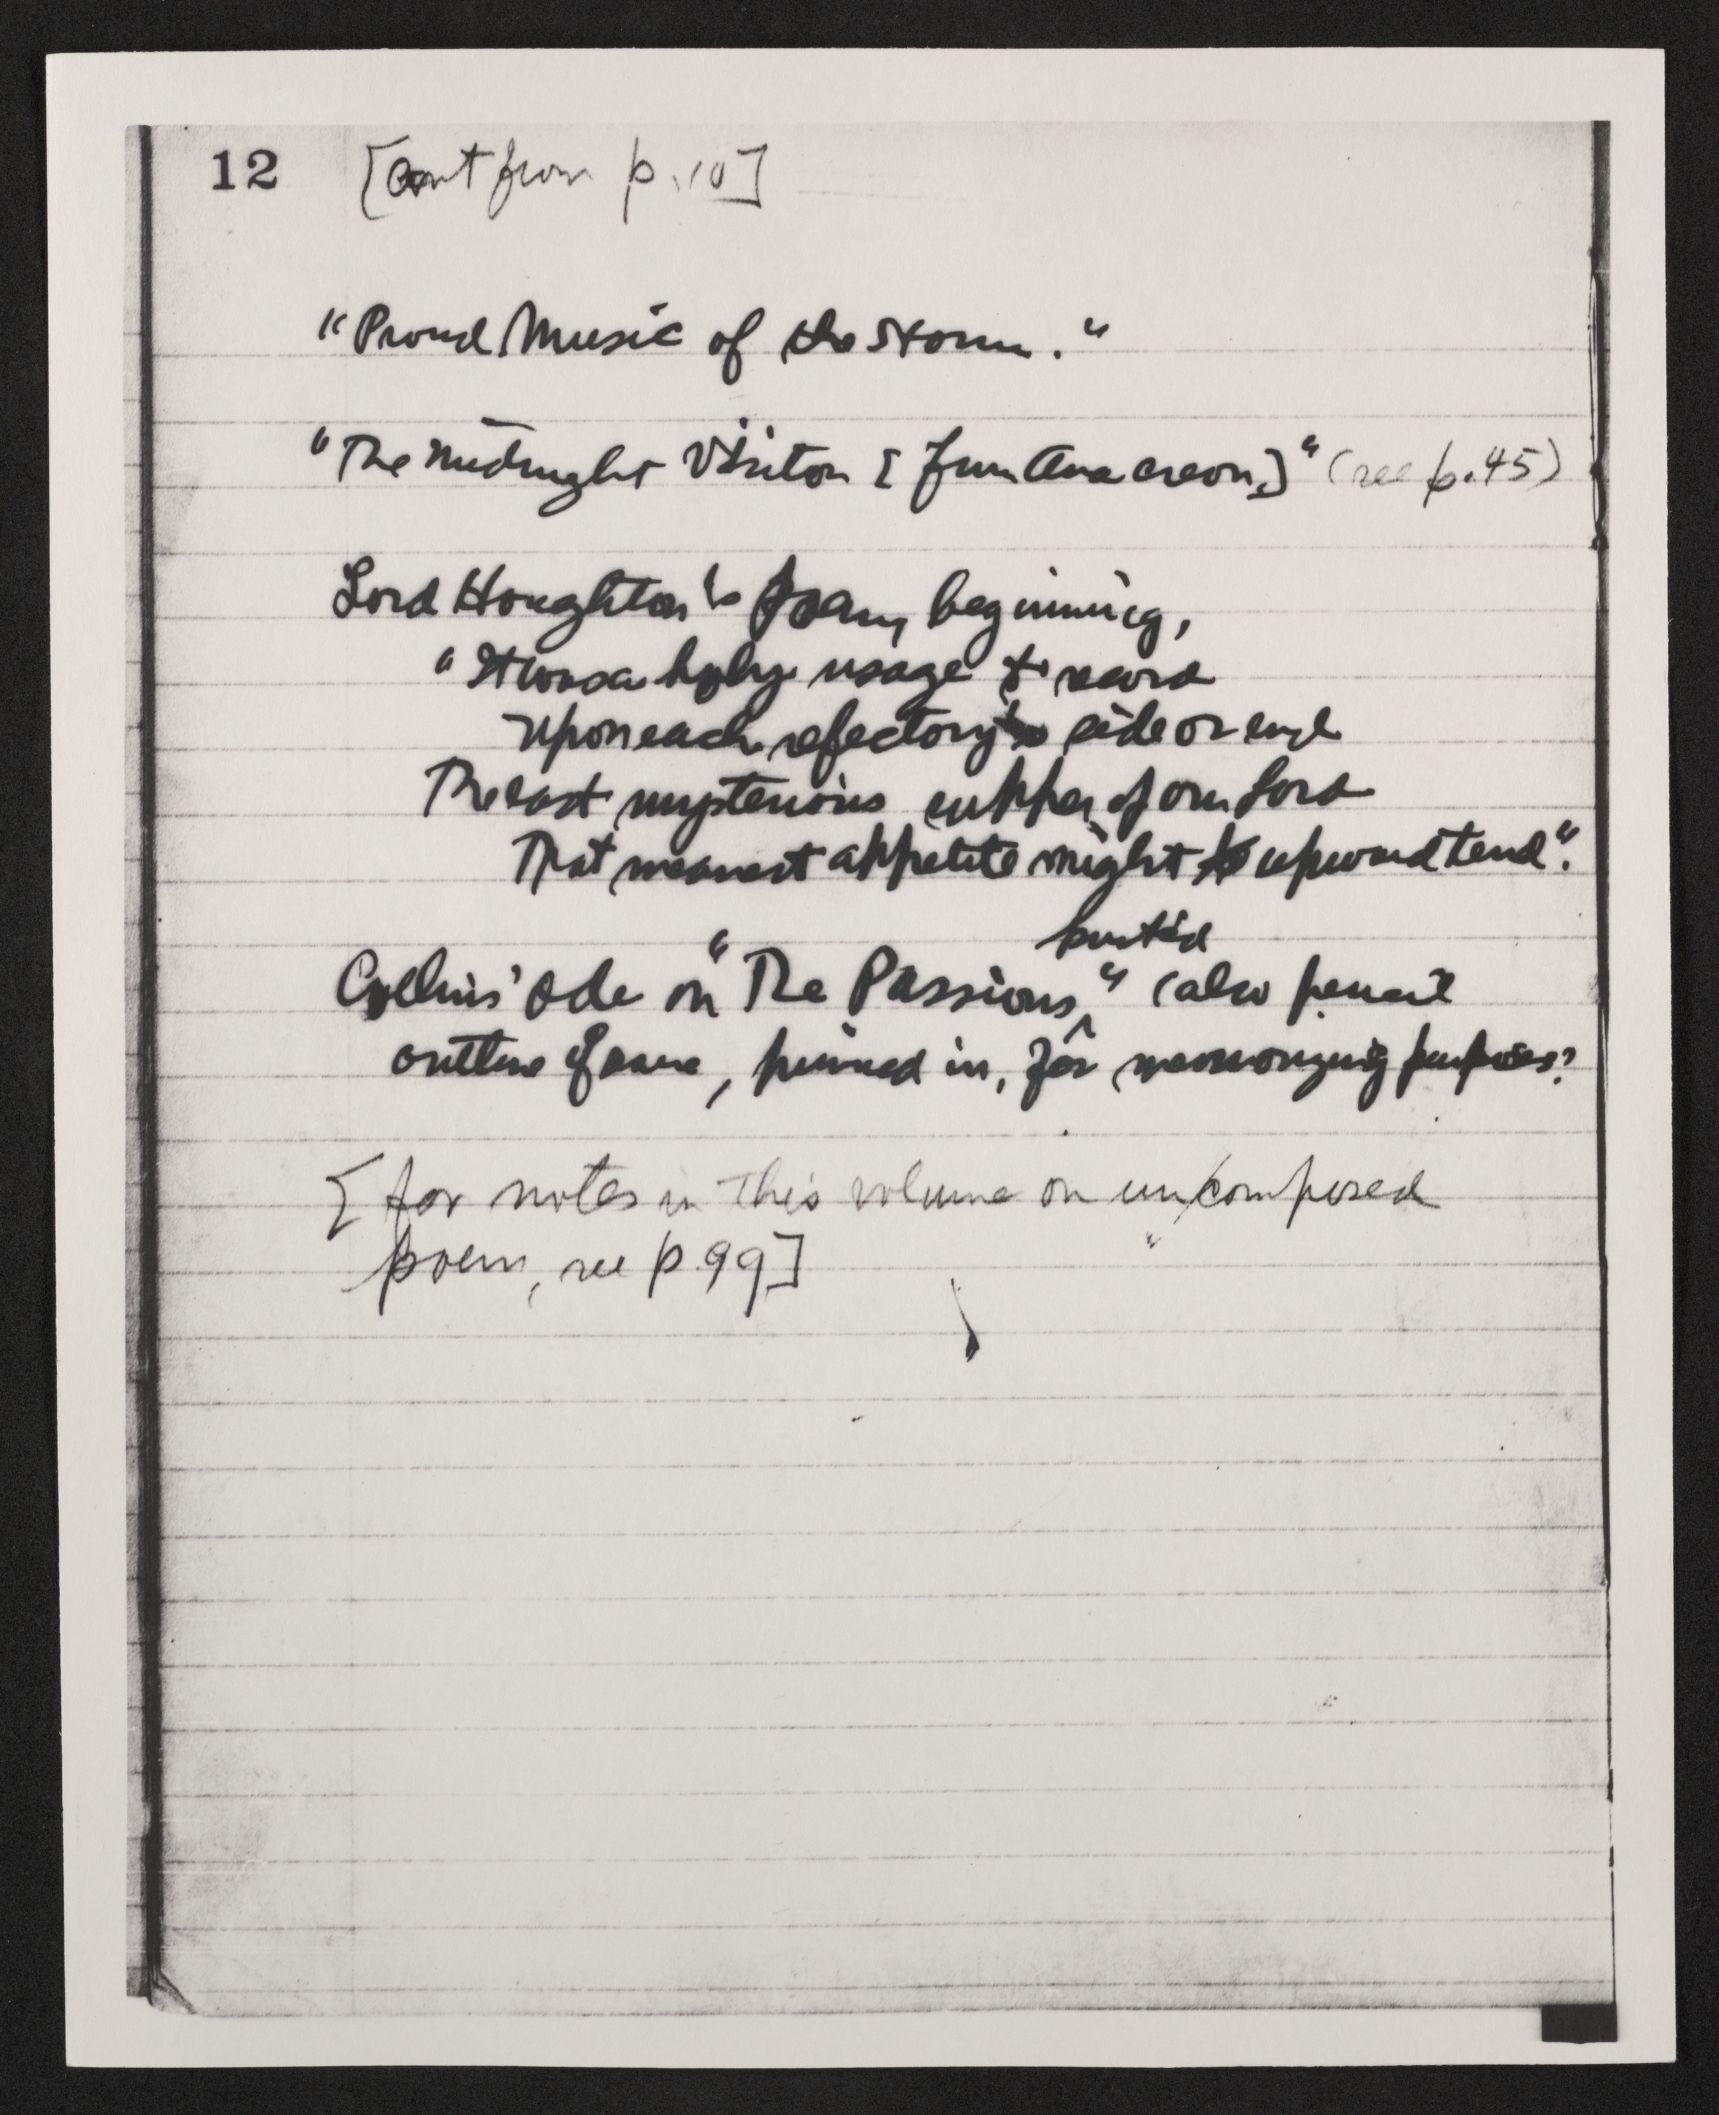 12 [Cont from p. 10]
"Proud Music of the Storm."
"The Midnight Visitor [from Anacreon]" (see p. 45)
Lord Houghton's poem, beginning,
"It was a holy usage to record
Upon each refectory's side or end
The last mysterious supper of our Lord
That meanest appetite might to upward tend".
printed
Collins' Ode on "The Passions," (also pencil
outline of same, pinned in, for memorizing purposes?
[for notes in this volume on uncomposed
poem, see p. 99]